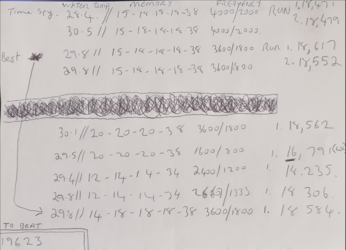 Time Spy. WATER TEMP MEMORY FREQUENCY 1. 18,471
28.4 // 15-18-18-18-38 4000/2000 RUN 2. 18,479
30.5 // 15-18-18-18-38 4000/2000
Best 29.8 // 15-18-18-18-38 3600/1800 RUN 1. 18,617
29.8 // 15-18-18-18-38 3600/1800 2. 18,552
30.1 // 20-20-20-38 3600/1800 1. 18,562
29.5 // 20-20-20-38 1600/800 1. 16,791
29.4 // 12-14-14-34 2400/1200 1. 18.235
29.8 // 12-14-14-34 2667/1333 18 306
29.8 // 14-18-18-18-38 3600/1800 1. 18 584
TO BEAT
19623